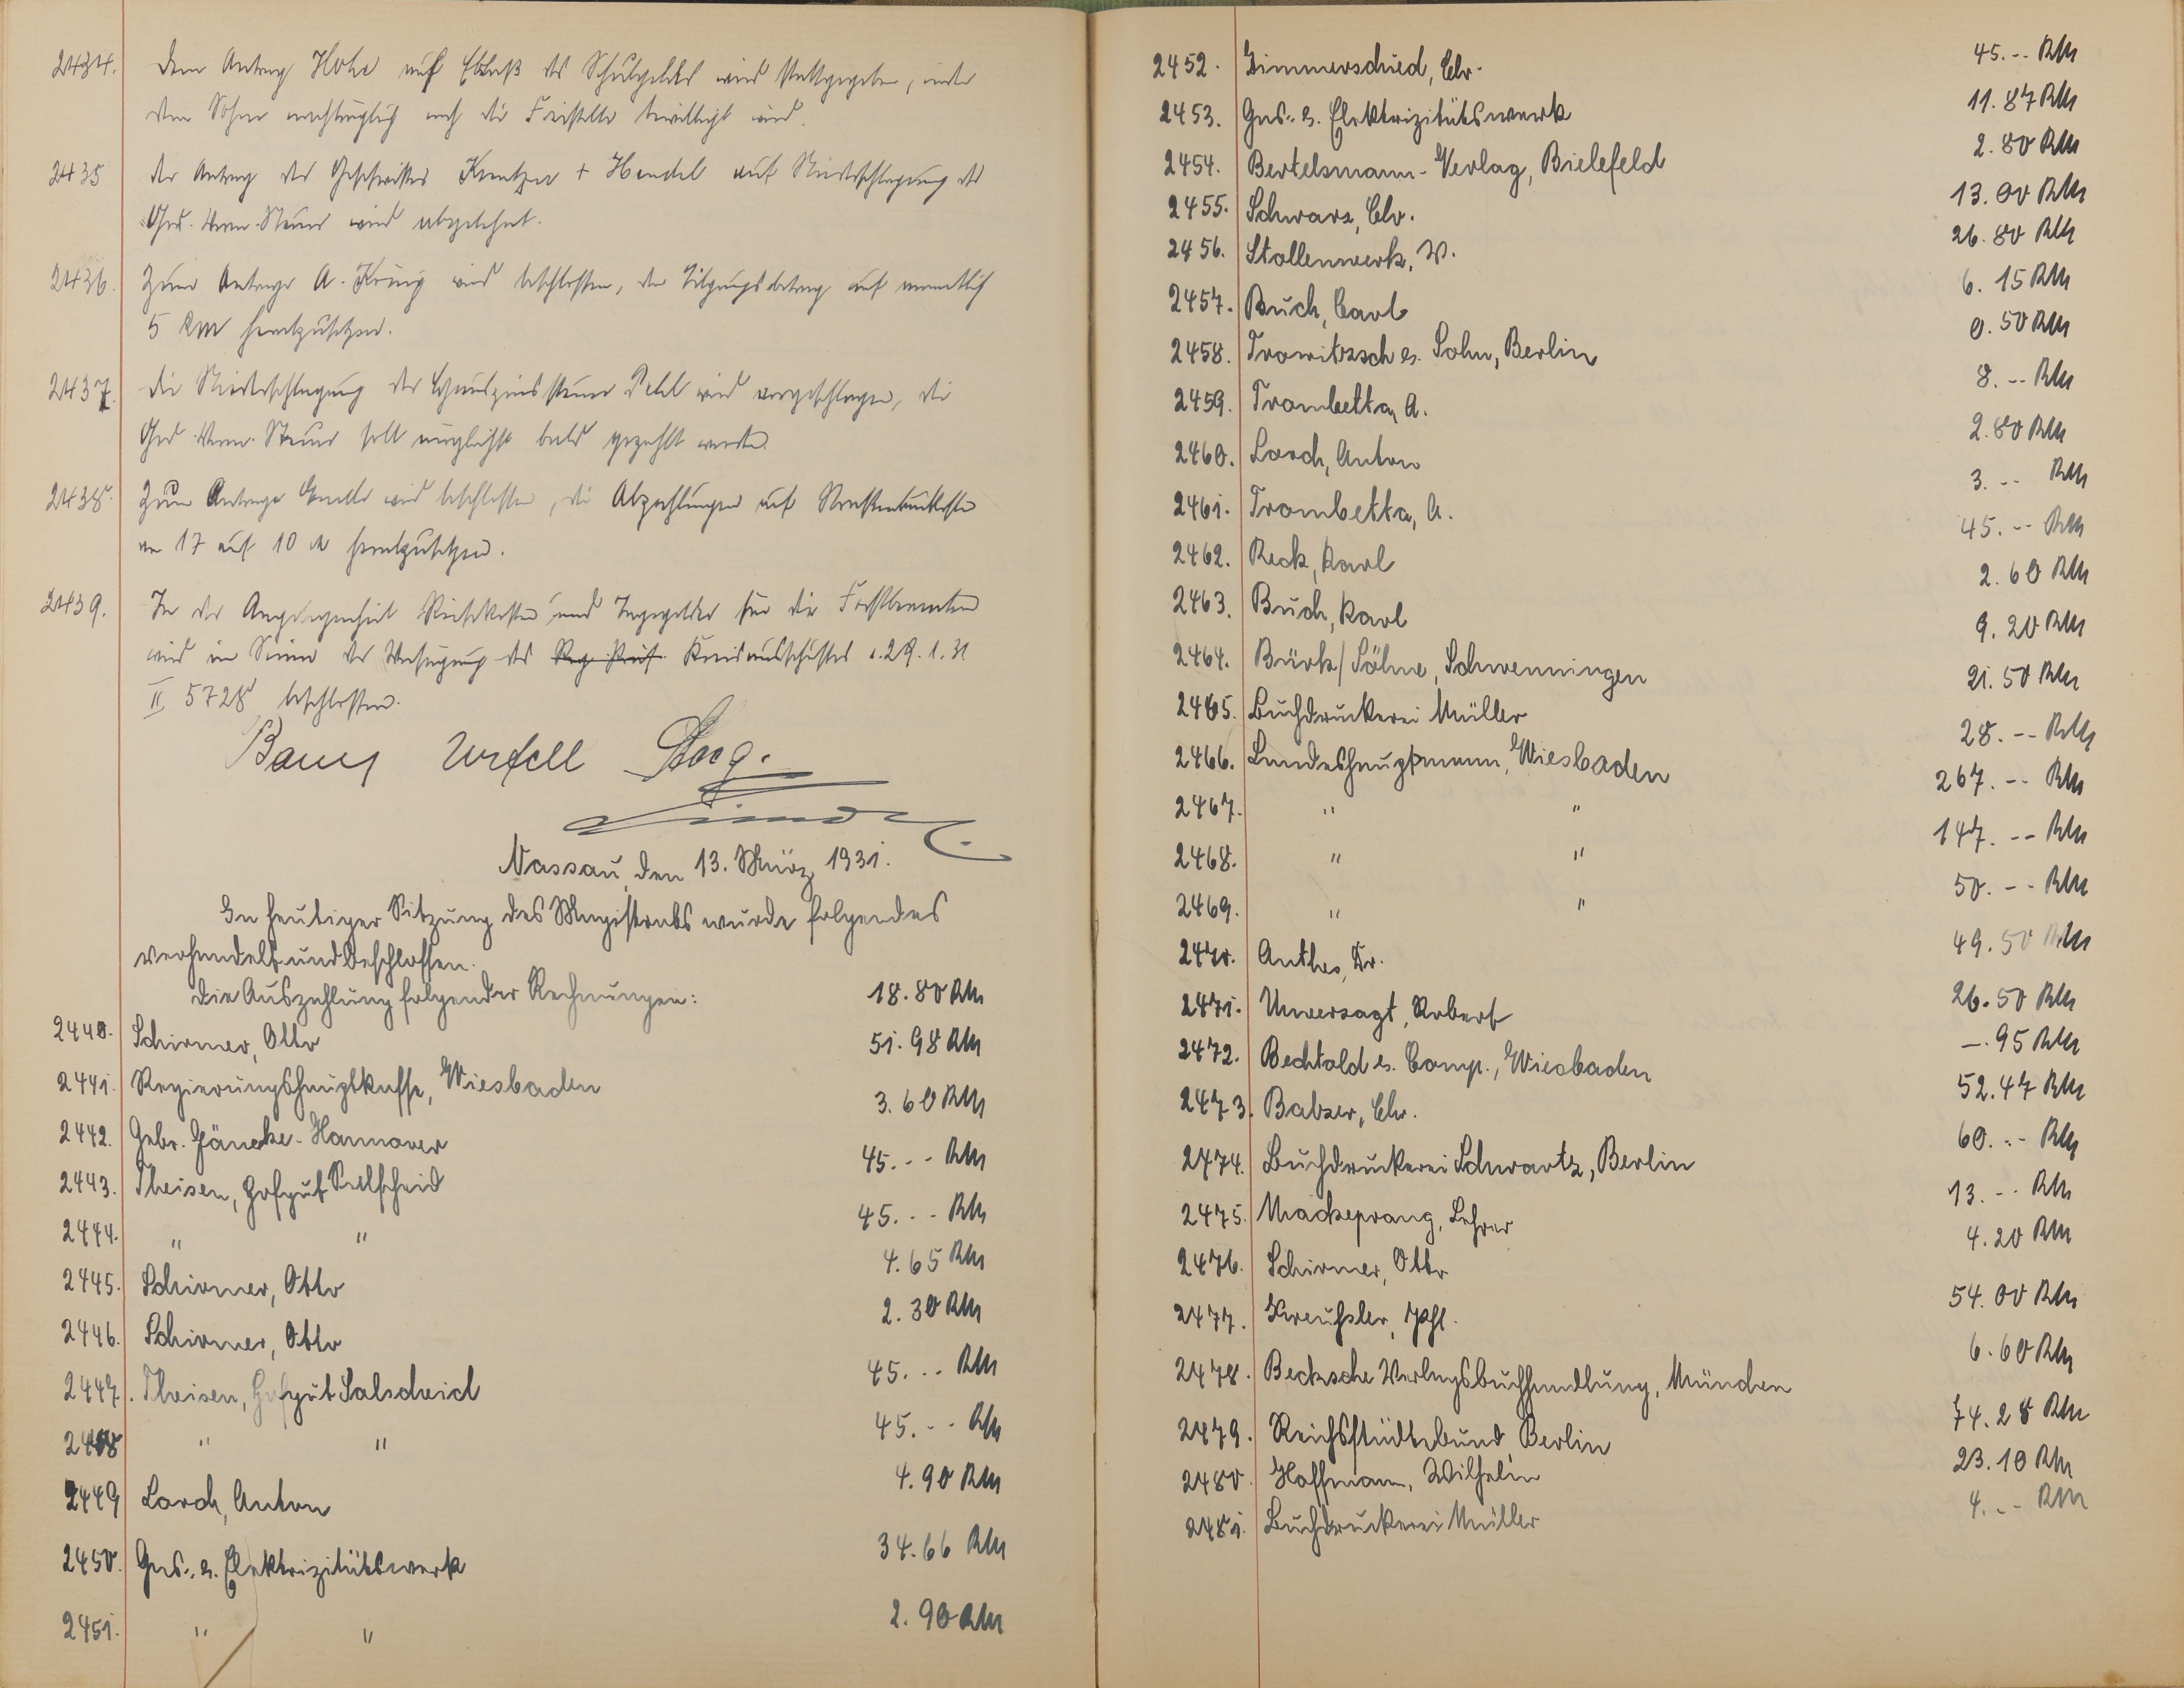 2434. Dem Antrag Hohe auf Erlaß des Schulgeldes wird stattgegeben, indem
dem Sohne nachträglich noch die Freistelle bewilligt wird.
2435 Der Antrag der Geschwister Kreutzer + Handel auf Niederschlagung der
Grd. Verm. Steuer wird abgelehnt.
2436. Zum Antrage A. König wird beschlossen, den Tilgungsbetrag auf monatlich
5 RM herabzusetzen.
2437. Die Niederschlagung der Hauszinssteuer wird vorgeschlagen, die
Grd. Verm. Steuer soll möglichst bald gezahlt werden.
2438. Zum Antrage wird beschlossen, die Abzahlungen auf Strassenbaukosten
von 17 auf 10 M herabzusetzen.
2439. In der Angelegenheit Reisekosten und Tagegelder für die Forstbeamten
wird im Sinne der Verfügung des Reg. Präs. Kreisausschusses v. 29.1.31
II 5728 beschlossen.
Nassau, den 13. März 1931.
In heutiger Sitzung des Magistrats wurde folgendes
verhandelt und beschlossen.
Die Auszahlung folgender Rechnungen:
2440. Schirmer, Otto 18.80 RM
2441. Regierungshauptkasse, Wiesbaden 51.98 RM
2442. Gebr. Jänecke - Hannover 3.60 RM
2443. Theisen, Hofgut Salscheid 45.-- RM
2444. " " 45.-- RM
2445. Schirmer, Otto 4.65 RM
2446. Schirmer, Otto 2.30 RM
2447. Theisen, Hofgut Salscheid 45.-- RM
2448 " " 45.-- RM
2449 Lorch, Anton 4.90 RM
2450. Gas- u. Elektrizitätswerk 34.66 RM
2451. " " 2.90 RM
2452. Zimmerschied, Chr. 45.-- RM
2453. Gas- u. Elektrizitätswerk 11.87 RM
2454. Bertelsmann-Verlag, Bielefeld 2.80 RM
2455. Schwarz, Chr. 13.00 RM
2456. Stollenwerk, W. 26.80 RM
2457. Buch, Carl 6.15 RM
2458. Trowitzsch u. Sohn, Berlin 0.50 RM
2459. Trombetta, A. 8.-- RM
2460. Lorch, Anton 2.80 RM
2461. Trombetta, A. 3.-- RM
2462. Reck, Karl 45.-- RM
2463. Buch, Karl 2.60 RM
2464. Bürk/Söhne, Schwenningen 9.20 RM
2465. Buchdruckerei Müller 21.50 RM
2466. Landeshauptmann, Wiesbaden 28.-- RM
2467. " " 267.-- RM
2468. " " 147.-- RM
2469. " " 50.-- RM
2470. Anthes, Dr. 49.50 RM
2471. Unversagt, Robert 26.50 RM
2472. Bechtold u. Comp., Wiesbaden -.95 RM
2473. Balzer, Chr. 52.47 RM
2474. Buchdruckerei Schwartz, Berlin 60.-- RM
2475. Mackeprang, Lehrer 13.-- RM
2476. Schirmer, Otto 4.20 RM
2477. Kreußler, Phl. 54.00 RM
2478. Becksche Verlagsbuchhandlung, München 6.60 RM
2479. Reichsstädtebund Berlin 74.28 RM
2480. Hoffmann, Wilhelm 23.10 RM
2481. Buchdruckerei Müller 4.-- RM